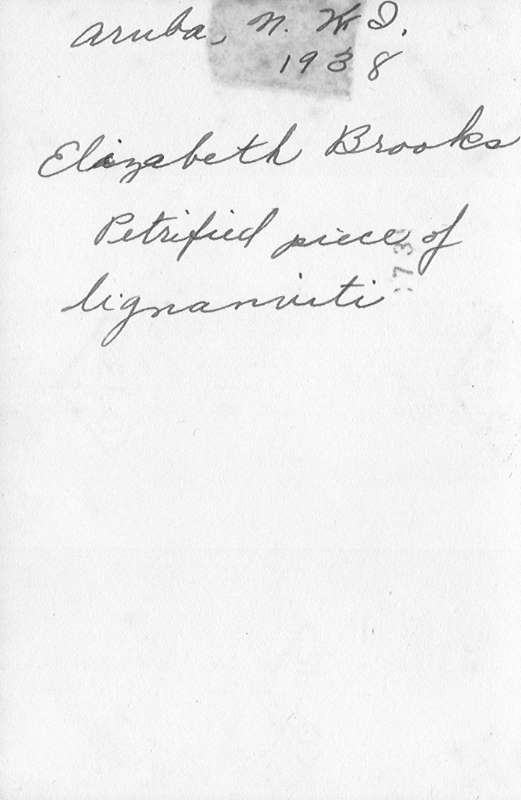 Aruba, N. W. I.
1938
Elizabeth Brooks
Petrified piece of
lignamviti